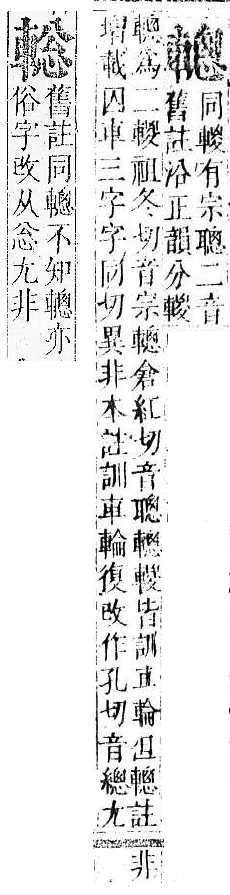 𨎢
同𨍉有宗聰二音
舊註沿正韻分𨍉
𨎢爲二𨍉祖冬切音宗𨎢倉紅切音聰𨎢𨍉皆訓車輪但𨎢註
增載囚車三字字同切異非本註訓車輪復改作孔切音總尤
非
舊註同𨎢不知𨎢亦
俗字改从忩尤非